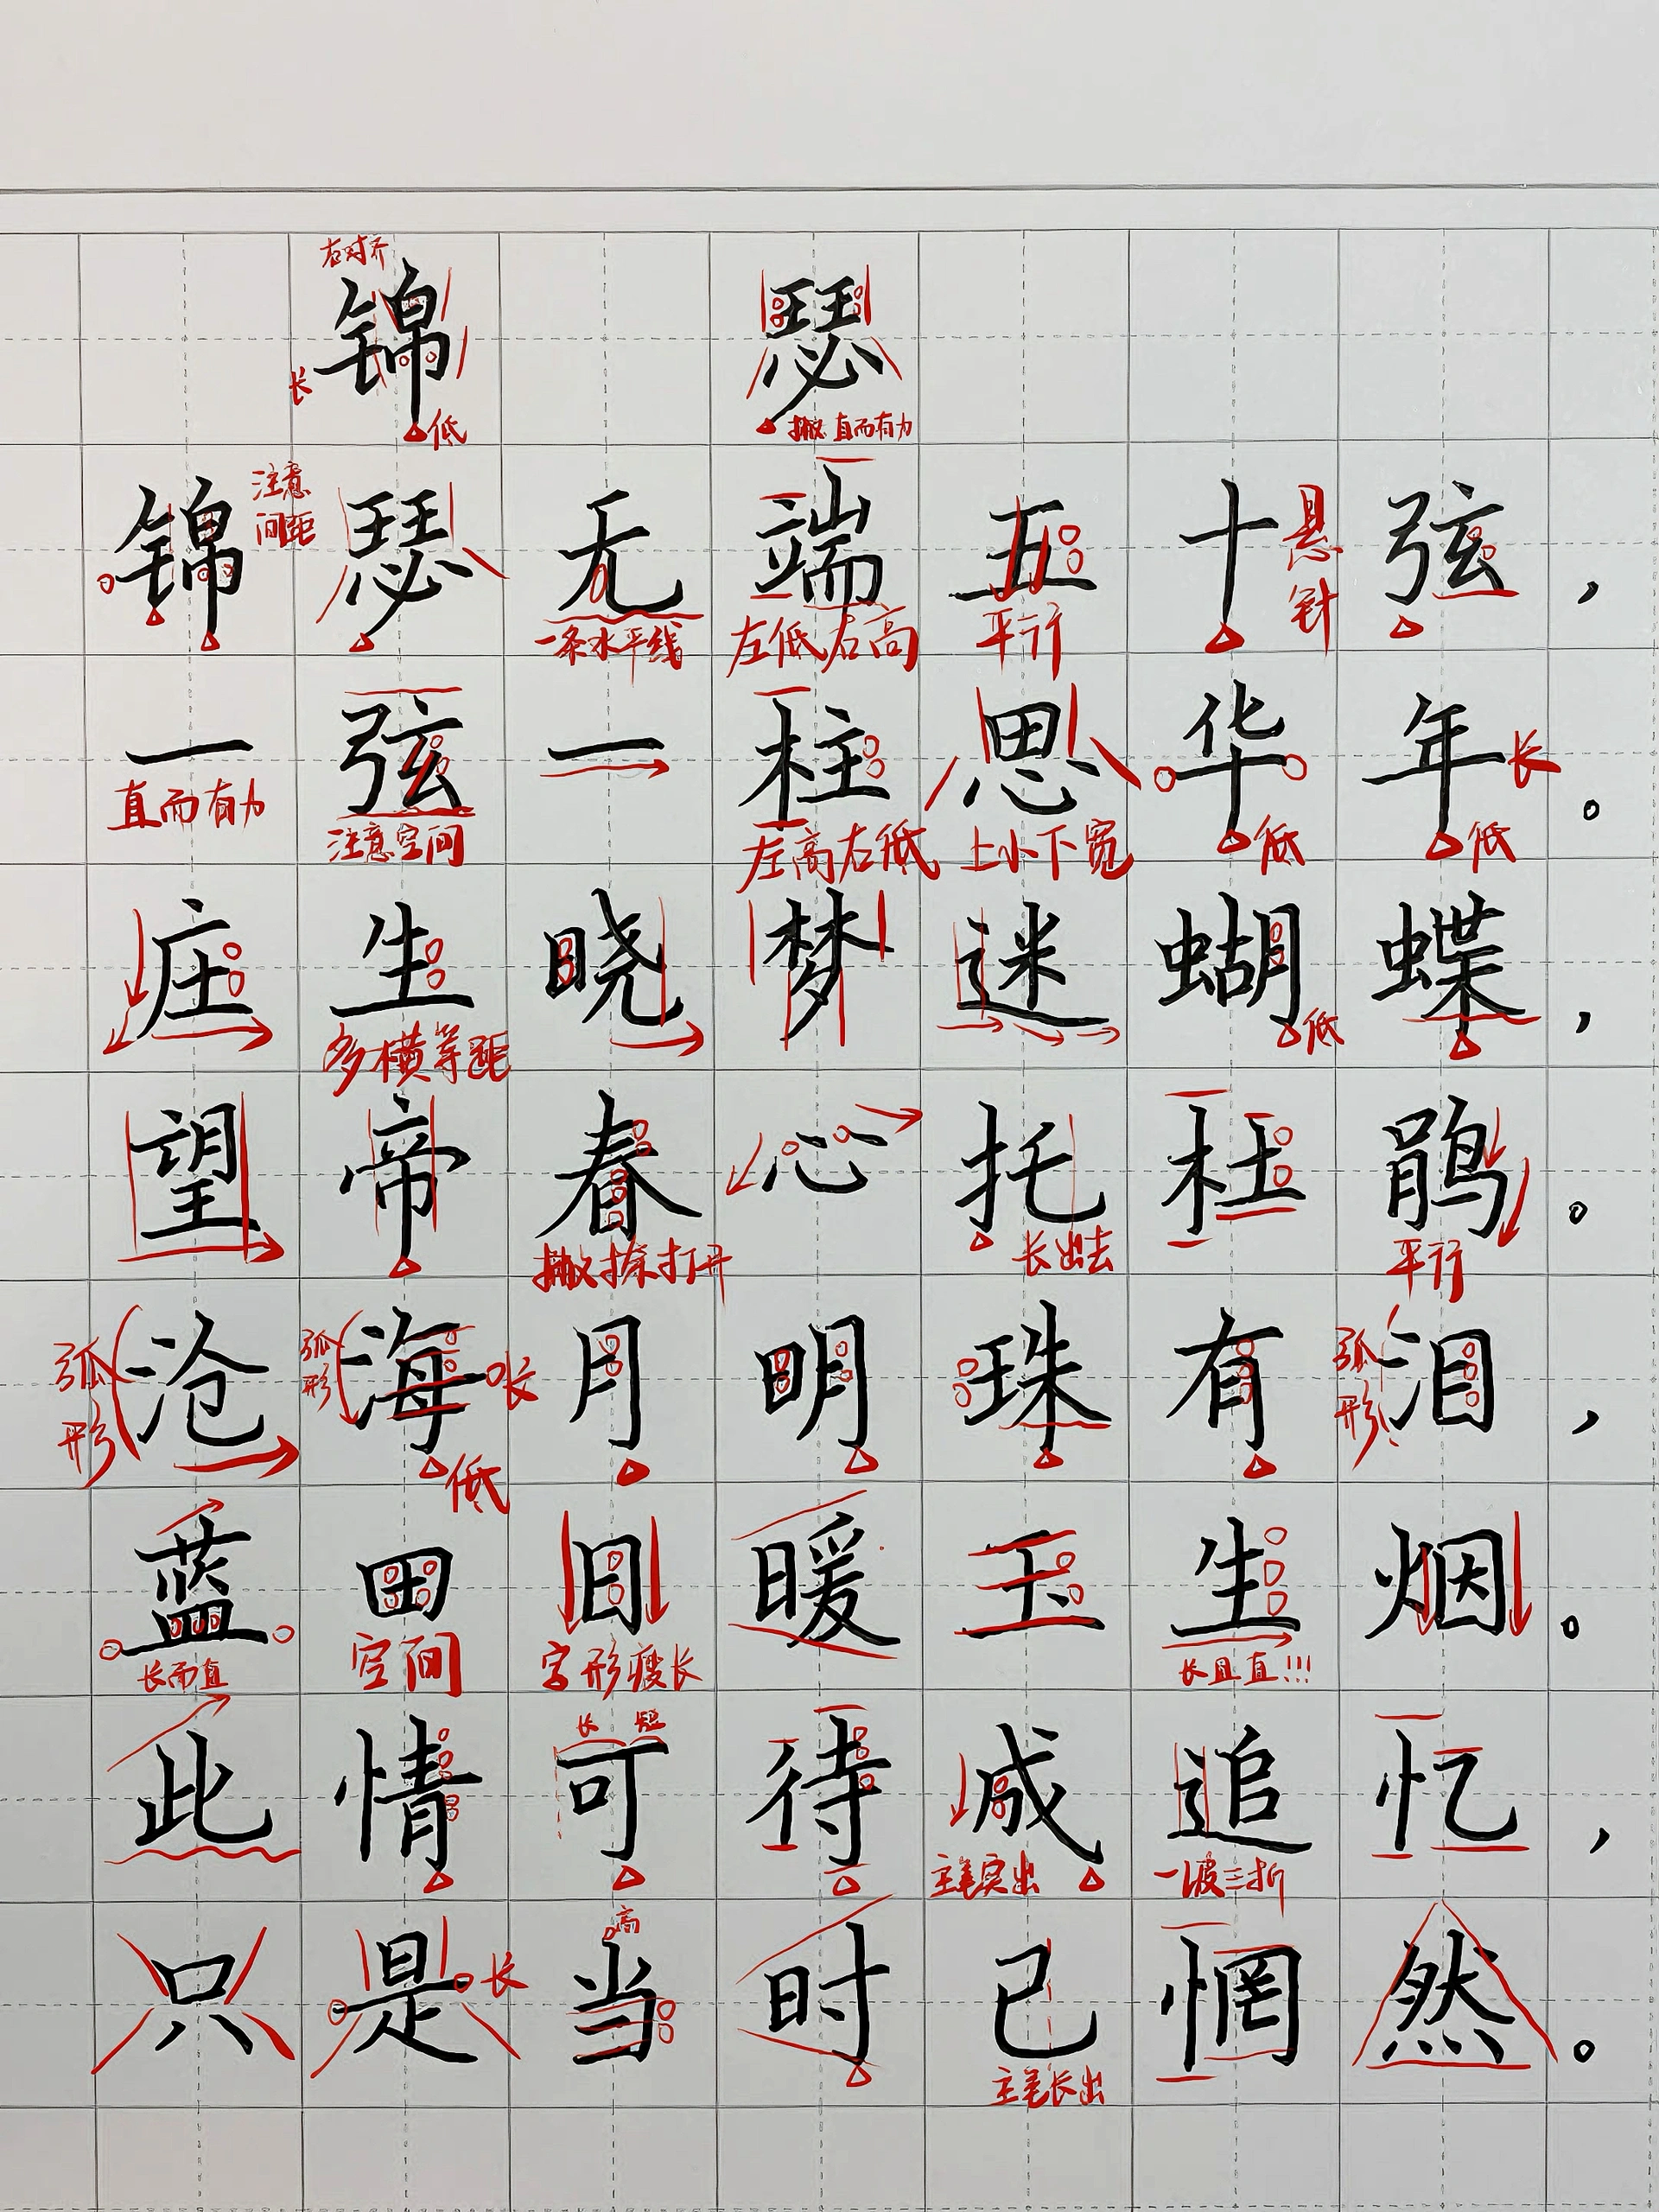 右对齐
锦 瑟
长 低 撇直而有力
锦瑟无端五十弦，
注意间距 悬针
一条水平线 左低右高 平行
一弦一柱思华年。
长
直而有力 注意空间 左高右低 上小下宽 低 低
庄生晓梦迷蝴蝶，
多横等距 低
望帝春心托杜鹃。
撇捺打开 长出去 平行
沧海月明珠有泪，
弧形 弧形 长 弧形
低
蓝田日暖玉生烟。
长而直 空间 字形瘦长 长且直!!!
长 短
此情可待成追忆，
主笔突出 一波三折
高
只是当时已惘然。
长
主笔长出